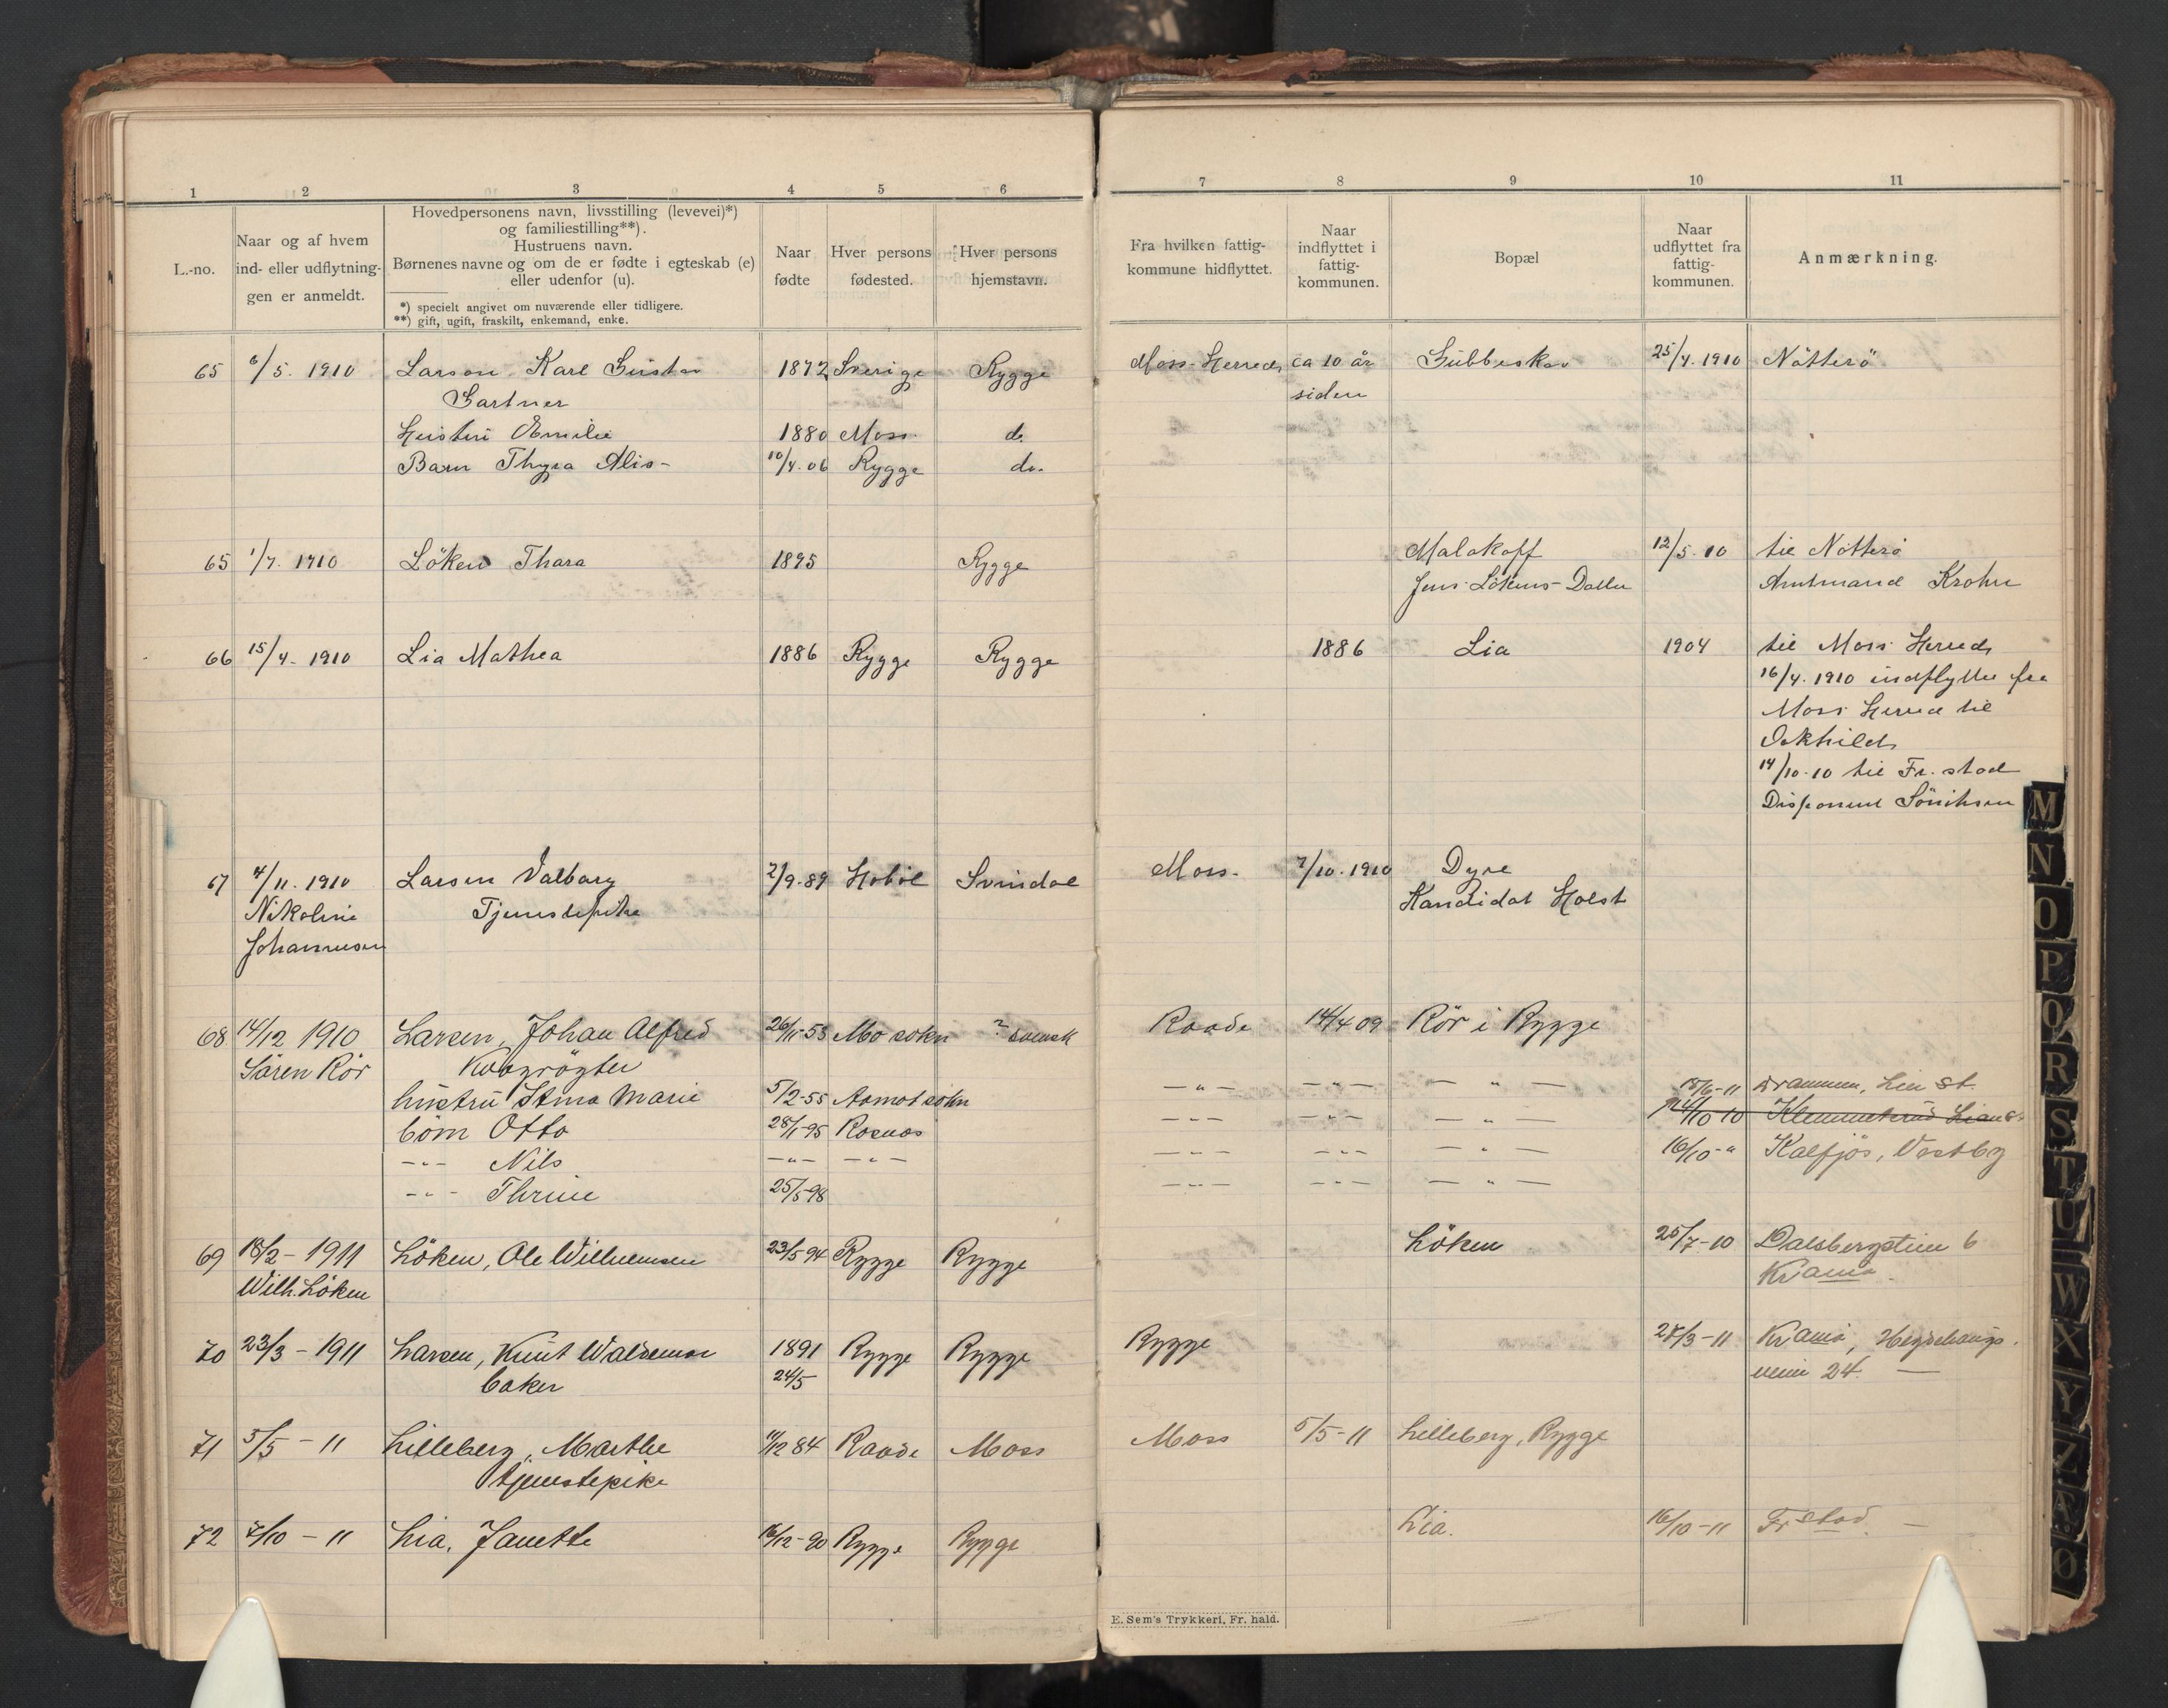 1 2 3 4 5 6
L.-no.
Naar og af hvem
ind- eller udflytnin-
gen er anmeldt.
Hovedpersonens navn, livsstilling (levevei)*)
og familiestilling**).
Hustruens navn.
Børnenes navne og om de er fødte i egteskab (e)
eller udenfor (u).
*) specielt angivet om nuværende eller tidligere.
**) gift, ugift, fraskilt, enkemand, enke.
Naar
fødte
Hver persons
fødested.
Hver persons
hjemstavn.
7 8 9 10 11
Fra hvilken fattig-
kommune hidflyttet.
Naar
indflyttet i
fattig-
kommunen.
Bopæl
Naar
udflyttet fra
fattig-
kommunen.
Anmærkning.
65 6/5. 1910 Larson Karl Gustav 1872 Sverige Rygge Moss Herred ca 10 år Gubbeskov 25/4. 1910 Nötterö
Gartner siden
Hustru Emilie 1880 Moss. do.
Barn Thyra Alis- 10/4.06 Rygge do.
65 1/7. 1910 Löken Thara 1895 Rygge Malakoff 12/5.10 til Nötterö
Jens Lökens Datter Amtmand Krohn
66 15/4. 1910 Lia Mathea 1886 Rygge Rygge 1886 Lia 1904 til Moss Herred
16/4. 1910 indflyttet fra
Moss Herred til
14/10-10 til Fr. stad
Disponent
67 4/11. 1910 Larsen Valborg 2/9.89 Hobøl Svindal Moss. 7/10.1910 Dyre
Nikoline Tjenestepike Kandidat Holst
Johannesen
68 14/12 1910 Larsen, Johan Alfred 26/11-53 Mo sokn ? svensk Raade 14/4 09 Rör i Rygge
Sören Rör Kvægrögter
hustru Stina Marie 5/2-55 Aamot sokn —"— —"— — " — 18/6-11 Drammen, Lier St.
börn Otto 28/1-95 —"— —"— — " — 14/10 10
-"- Nils —"— —"— —"— —"— — " — 16/10-" Kalfjös, Vestby
-"- Thrine 25/5-98 —"— —"— — " —
69 18/2-1911 Löken, Ole Wilhelmsen 23/5 94 Rygge Rygge Löken 25/7-10 Dalsbergstien 6
Wilh. Löken Kr.ania.
70 23/3-1911 Larsen, Knut Waldemar 1891 Rygge Rygge Rygge 28/3-11 Kr.ania, Hegdehougs.
baker 24/5 veien 24. —
71 5/5-11 Lilleberg, Marthe 11/12 84 Raade Moss Moss 5/5-11 Lilleberg, Rygge
tjenestepike
72 7/10-11 Lia, Janette 16/12-90 Rygge Rygge Lia. 16/10-11 Fr stad. —
E. Sem's Trykkeri, Fr. hald.
M
N
O
P
Q
R
S
T
U
W
X
Y
Z
Æ
Ø